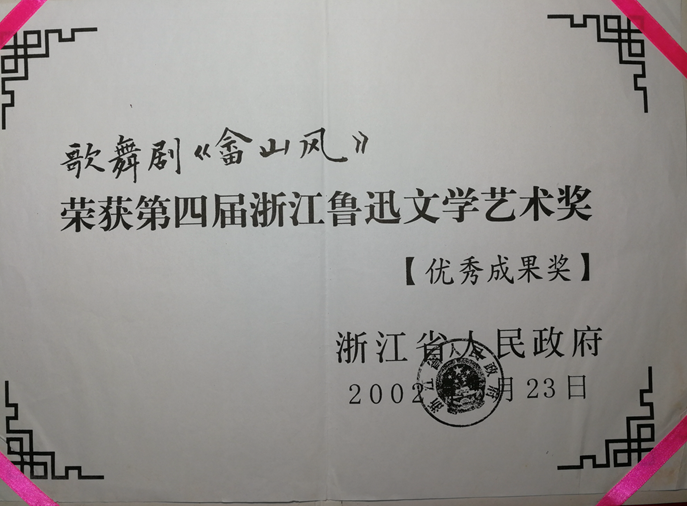 歌舞剧《畲山风》
荣获第四届浙江鲁迅文学艺术奖
【优秀成果奖】
浙江省人民政府
2002 月23日